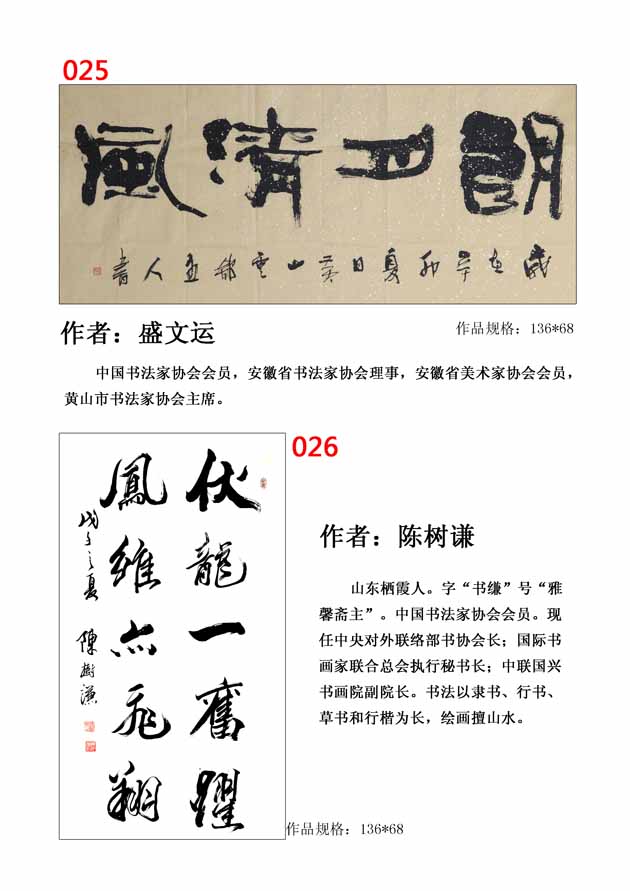 025
朗月清風
歲在辛卯夏日黃山雲人書
作者：盛文运
作品规格：136*68
中国书法家协会会员，安徽省书法家协会理事，安徽省美术家协会会员，
黄山市书法家协会主席。
026
伏龍一奮躍
鳳維亦飛翔
戊子之夏 陳樹謙
作者：陈树谦
山东栖霞人。字“书缣”号“雅
馨斋主”。中国书法家协会会员。现
任中央对外联络部书协会长；国际书
画家联合总会执行秘书长；中联国兴
书画院副院长。书法以隶书、行书、
草书和行楷为长，绘画擅山水。
作品规格：136*68